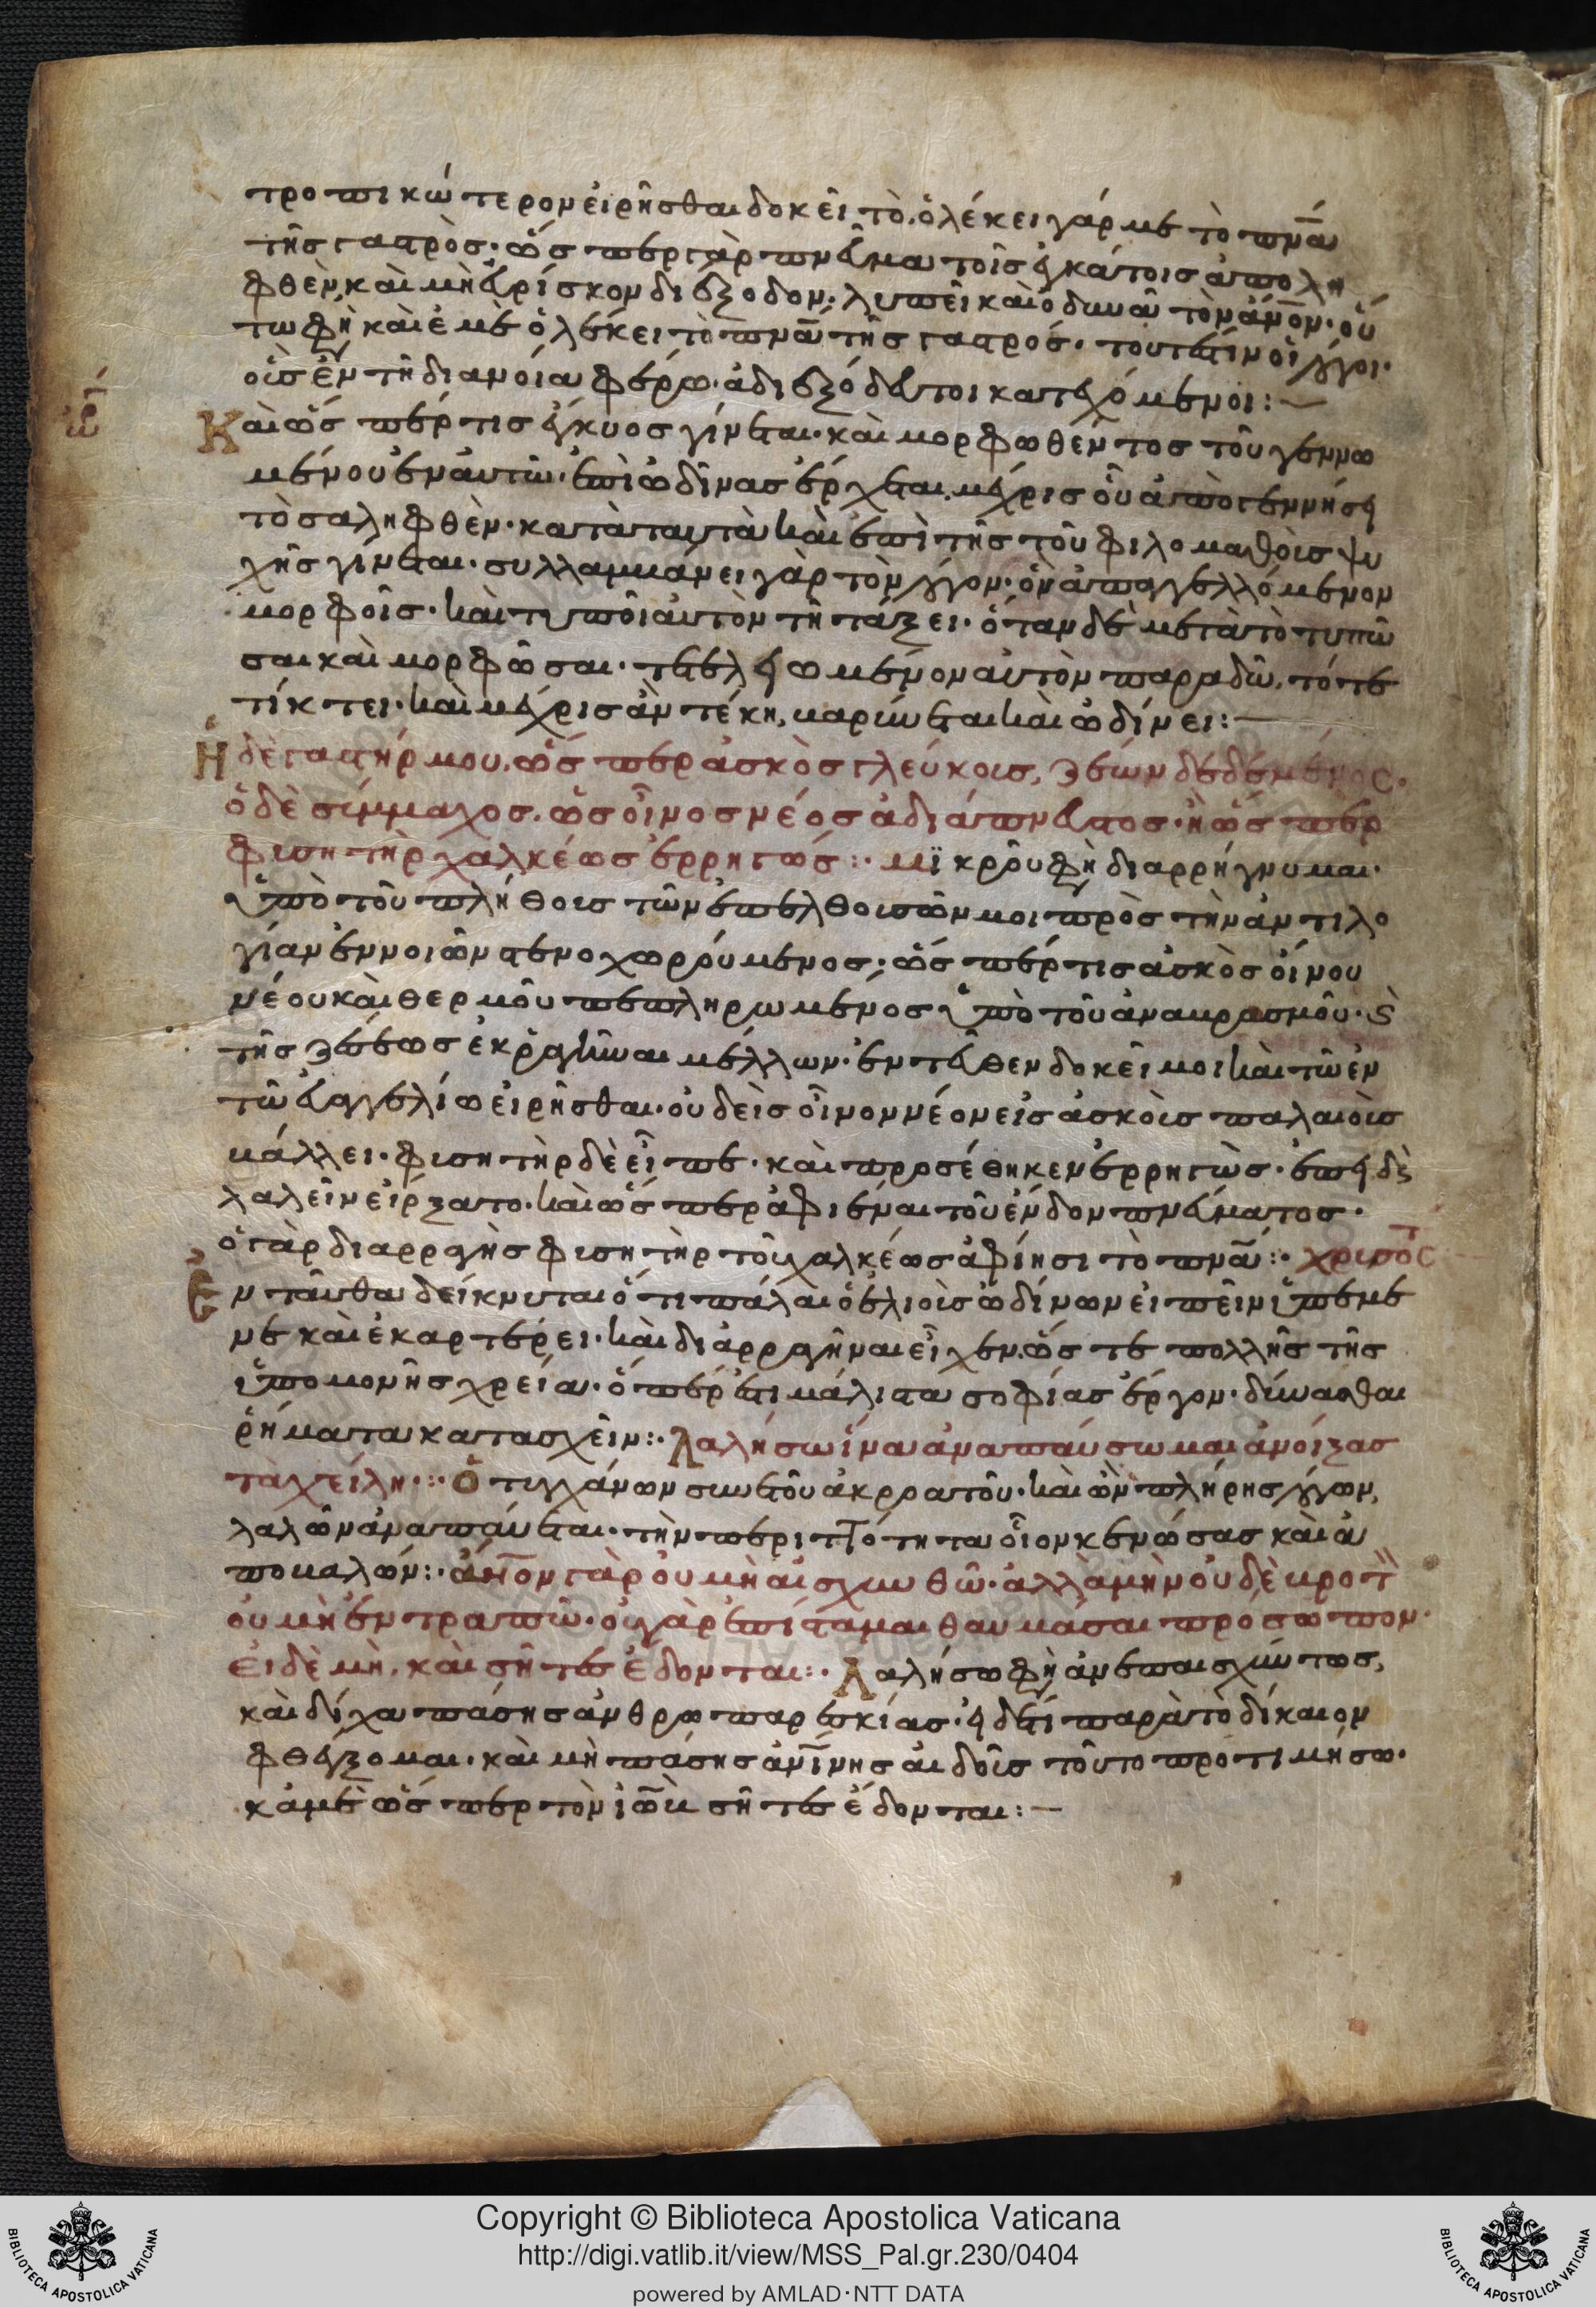 τροπικώτερον εἰρῆσθαι δοκεῖ τὸ. ὀλέκει γάρ με τὸ πνᾶ
τῆς γαστρὸς· ὥσπερ γὰρ πνεῦμα τοῖς ἐγκάτοις ἀπολη
φθὲν, καὶ μὴ εὑρίσκον διέξοδον· λυπεῖ καὶ ὀδυνᾶ τὸν ἄνον· οὕ
τω φὴ καὶ ἐμὲ ὀλέκει τὸ πνᾶ τῆς γαστρός· τουτέστιν οἱ λόγοι·
οὓς ἐν τῆ διανοία φέρω· ἀδιεξόδευτοι κατεχόμενοι:—
Καὶ ὥσπερ τις ἔγκυος γίνεται· καὶ μορφωθέντος τοῦ γεννω
μένου ἐν αὐτῶ· ἐπὶ ὠδῖνας ἔρχεται, μέχρις οὗ ἀπογεννήσει
τὸ συληφθὲν· κατὰ ταυτὰ καὶ ἐπὶ τῆς τοῦ φιλομαθοῦς ψυ
χῆς γίνεται· συλλαμβάνει γὰρ τὸν λόγον· ὃν ἀπαγγελλόμενον
μορφοῖ· καὶ τυποῖ αὐτὸν τῆ τάξει· ὅταν δὲ μετὰ τὸ τυπῶ
σαι καὶ μορφῶσαι· τετελειωμένον αὐτὸν παραδῶ, τότε
τίκτει· καὶ μέχρις ἂν τέκη, βαρύνεται καὶ ὠδίνει:—
Ἡ δὲ γαστήρ μου, ὥσπερ ἀσκὸς γλεύκους, ζέων δεδεμένος·
ὁ δὲ σύμμαχος. ὡς οἶνος νέος ἀδιάπνευστος· ἢ ὥσπερ
φυσητὴρ χαλκέως ἐρρηγώς:· Μϊκροῦ φὴ διαρρήγνυμαι·
ὑπὸ τοῦ πλήθους τῶν ἐπελθουσῶν μοι πρὸς τὴν ἀντιλο
γίαν ἐννοιῶν στενοχωρούμενος· ὥσπέρ τις ἀσκὸς οἴνου
νέου καὶ θερμοῦ πεπληρωμένος ὑπὸ τοῦ ἀναβρασμοῦ· ϛ
τῆς ζέσεως ἐκραγῆναι μέλλων· ἐντεῦθεν δοκεῖ μοι καὶ τῶ ἐν
τῶ εὐαγγελίω εἰρῆσθαι· οὐδεὶς οἶνον νέον εἰς ἀσκοὺς παλαιοὺς
βάλλει· φυσητὴρ δὲ εἶπε· καὶ προσέθηκεν ἐρρηγὼς· ἐπεὶ δὲ
λαλεῖν εἴρξατο· καὶ ὥσπερ ἀφιέναι τοῦ ἔνδον πνεύματος·
ὁ γὰρ διαρραγὴς φυσητὴρ τοῦ χαλκέως ἀφίησι τὸ πνᾶ:· χρυσοστ
Ἐνταῦθα δείκνυται ὅτι πάλαι ὁ ἐλιοὺς ὠδίνων εἰπεῖν ὑπέμε
νε καὶ ἐκαρτέρει· καὶ διαρραγῆναι εἶχεν· ὥστε πολλῆς τῆς
ὑπομονῆς χρεία· ὅπέρ ἐστι μάλιστα σοφίας ἔργον· δύνασθαι
ῥήματα κατασχεῖν:· Λαλήσω ἵνα ἀναπαύσωμαι ἀνοίξας
τὰ χείλη:· Ὁ τυγχάνων συνετοῦ ἀκροατοῦ· καὶ ὢν πλήρης λόγων,
λαλῶν ἀναπαύεται· τὴν περιττότητα οἷον κενώσας καὶ ἀ
ποβαλών:· ἄνον γὰρ οὐ μὴ αἰσχυνθῶ· ἀλλὰ μὴν οὐδὲ βροτ
οὐ μὴ ἐντραπῶ· οὐ γὰρ ἐπίσταμαι θαυμάσαι πρόσωπον·
εἰ δὲ μὴ, καὶ σῆτες ἔδονται:· Λαλήσω φὴ ἀνεπαισχύντως,
καὶ δίχα πάσης ἀνθρωπαρεσκίας· εἰ δέ τι παρὰ τὸ δίκαιον
φθέγξομαι· καὶ μὴ πάσης ἀνίνης αἰδοῦς τοῦτο προτιμήσω·
κἀμὲ ὥσπερ τὸν ἰὼβ σῆτες ἔδονται:—
Copyright © Biblioteca Apostolica Vaticana
http://digi.vatlib.it/view/MSS_Pal.gr.230/0404
powered by AMLAD·NTT DATA
BIBLIOTECA APOSTOLICA VATICANA
BIBLIOTECA APOSTOLICA VATICANA